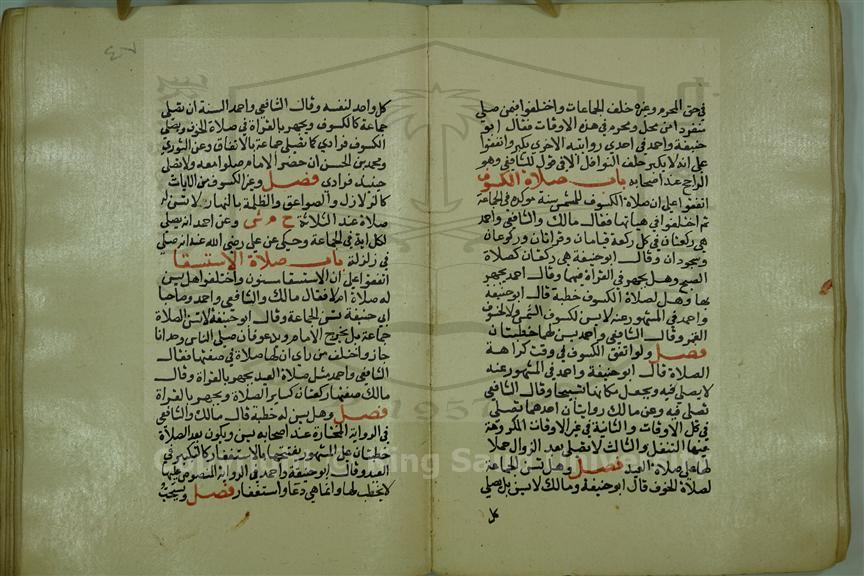 في حق المحرم وغيره خلف الجماعات واختلفوا فيمن صلي
منفردا من محل ومحرم في هذه الاوقات فقال ابو
حنيفة واحمد في احدي روايتيه الاخري يكبر واتفقوا
علي انه لا يكبر خلف النوافل الا في قول للشافعي وهو
الراجح عند اصحابه باب صلاة الكسوف
اتفقوا علي ان صلاة الكسوف للشمس سنة موكدة في الجماعة
ثم اختلفوا في هياتها فقال مالك والشافعي واحمد
هي ركعتان في كل ركعة قيامان وقراتان وركوعان
وسجودان وقال ابو حنيفة هي ركعتان كصلاة
الصبح وهل يجهر في القراة فيها وقال احمد يجهر
بها وهل لصلاة الكسوف خطبة قال ابو حنيفة
واحمد في المشهور عنه لا يسن لكسوف الشمس ولا لخسوف
القمر وقال الشافعي واحمد يسن لها خطبتان
فصل ولو اتفق الكسوف في وقت كراهة
الصلاة قال ابو حنيفة واحمد في المشهور عنه
لا يصلي فيه ويجعل مكانها تسبيحا وقال الشافعي
تصلي فيه وعن مالك روايتان احدهما تصلي
في كل الاوقات والثانية في غير الاوقات المكروهة
فيها التنفل والثالث لا يصلي بعد الزوال حملا
لها علي صلاة العيد فصل وهل تسن الجماعة
لصلاة الخسوف قال ابو حنيفة ومالك لا يسن بل يصلي
كل
٤٧
كل واحد لنفسه وقال الشافعي واحمد السنة ان يصلي
جماعة كالكسوف ويجهر بالقراة في صلاة الخسوف ويصلي
الكسوف فرادي كما تصلي جماعة بالاتفاق وعن الثوري
ومحمد بن الحسن ان حضر الامام صلوا معه ولا تصل
حينيذ فرادي فصل وغير الكسوف من الايات
كالزلازل والصواعق والظلمة بالنهار لا تسن له
صلاة عند الثلاثة ح م ش وعن احمد انه يصلي
لكل اية في الجماعة وحكي عن علي رضي الله عنه انه صلي
في زلزلة باب صلاة الاستسقا
اتفقوا علي ان الاستسقا مسنون واختلفوا هل يسن
له صلاة ام لا فقال مالك والشافعي واحمد وصاحبا
ابي حنيفة تسن الجماعة وقال ابو حنيفة لا تسن الصلاة
جماعة بل يخرج الامام ويدعو فان صلي الناس وحدانا
جاز واختلف من راي ان لها صلاة في صفتها فقال
الشافعي واحمد مثل صلاة العيد يجهر بالقراة وقال
مالك صفتها ركعتان كساير الصلاة ويجهر بالقراة
فصل وهل يسن له خطبة قال مالك والشافعي
في الرواية المختارة عند اصحابه يسن ويكون بعد الصلاة
خطبتان علي المشهور يفتتحها بالاستغفار كالتكبير في
العيد وقال ابو حنيفة واحمد في الرواية المنصوص عليها
لا يخطب لها وانما هي دعا واستغفار فصل ويستحب